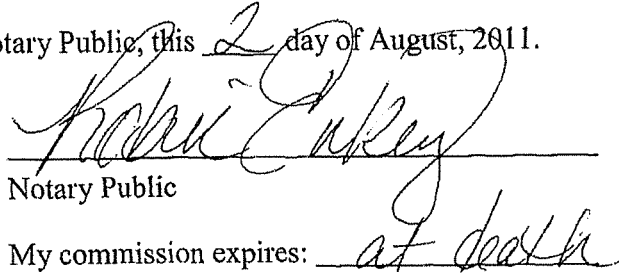 otary Public, this 2 day of August, 2011.
Notary Public
My commission expires: at death